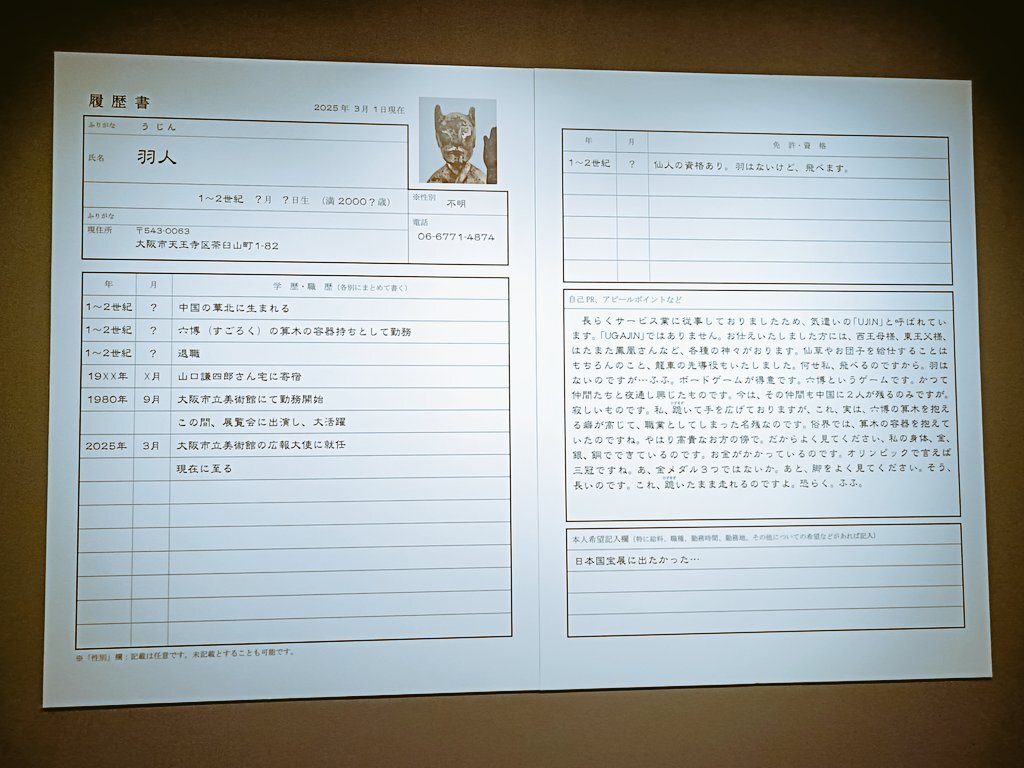 履歴書
2025年 3月 1日現在
ふりがな うじん
氏名 羽人
1〜2世紀 ?月 ?日生 （満 2000？歳）
※性別 不明
ふりがな
現住所 〒543-0063
大阪市天王寺区茶臼山町1-82
電話
06-6771-4874
年 月 学 歴・職 歴（各別にまとめて書く）
1〜2世紀 ? 中国の華北に生まれる
1〜2世紀 ? 六博（すごろく）の算木の容器持ちとして勤務
1〜2世紀 ? 退職
19XX年 X月 山口謙四郎さん宅に寄宿
1980年 9月 大阪市立美術館にて勤務開始
この間、展覧会に出演し、大活躍
2025年 3月 大阪市立美術館の広報大使に就任
現在に至る
※「性別」欄：記載は任意です。未記載とすることも可能です。
年 月 免 許・資 格
1〜2世紀 ? 仙人の資格あり。羽はないけど、飛べます。
自己PR、アピールポイントなど
長らくサービス業に従事しておりましたため、気遣いの「UJIN」と呼ばれてい
ます。「UGAJIN」ではありません。お仕えいたしました方には、西王母様、東王父様、
はたまた鳳凰さんなど、各種の神々がおります。仙草やお団子を給仕することは
もちろんのこと、龍車の先導役もいたしました。何せ私、飛べるのですから。羽は
ないのですが…ふふ。ボードゲームが得意です。六博というゲームです。かつて
仲間たちと夜通し興じたものです。今は、その仲間も中国に2人が残るのみですが。
寂しいものです。私、跪いて手を広げておりますが、これ、実は、六博の算木を抱え
る癖が高じて、職業としてしまった名残なのです。俗界では、算木の容器を抱えて
いたのですね。やはり高貴なお方の傍で。だからよく見てください、私の身体、金、
銀、銅でできているのです。お金がかかっているのです。オリンピックで言えば
三冠ですね。あ、金メダル3つではないか。あと、脚をよく見てください。そう、
長いのです。これ、跪いたまま走れるのですよ。恐らく。ふふ。
本人希望記入欄（特に給料、職種、勤務時間、勤務地、その他についての希望などがあれば記入）
日本国宝展に出たかった…